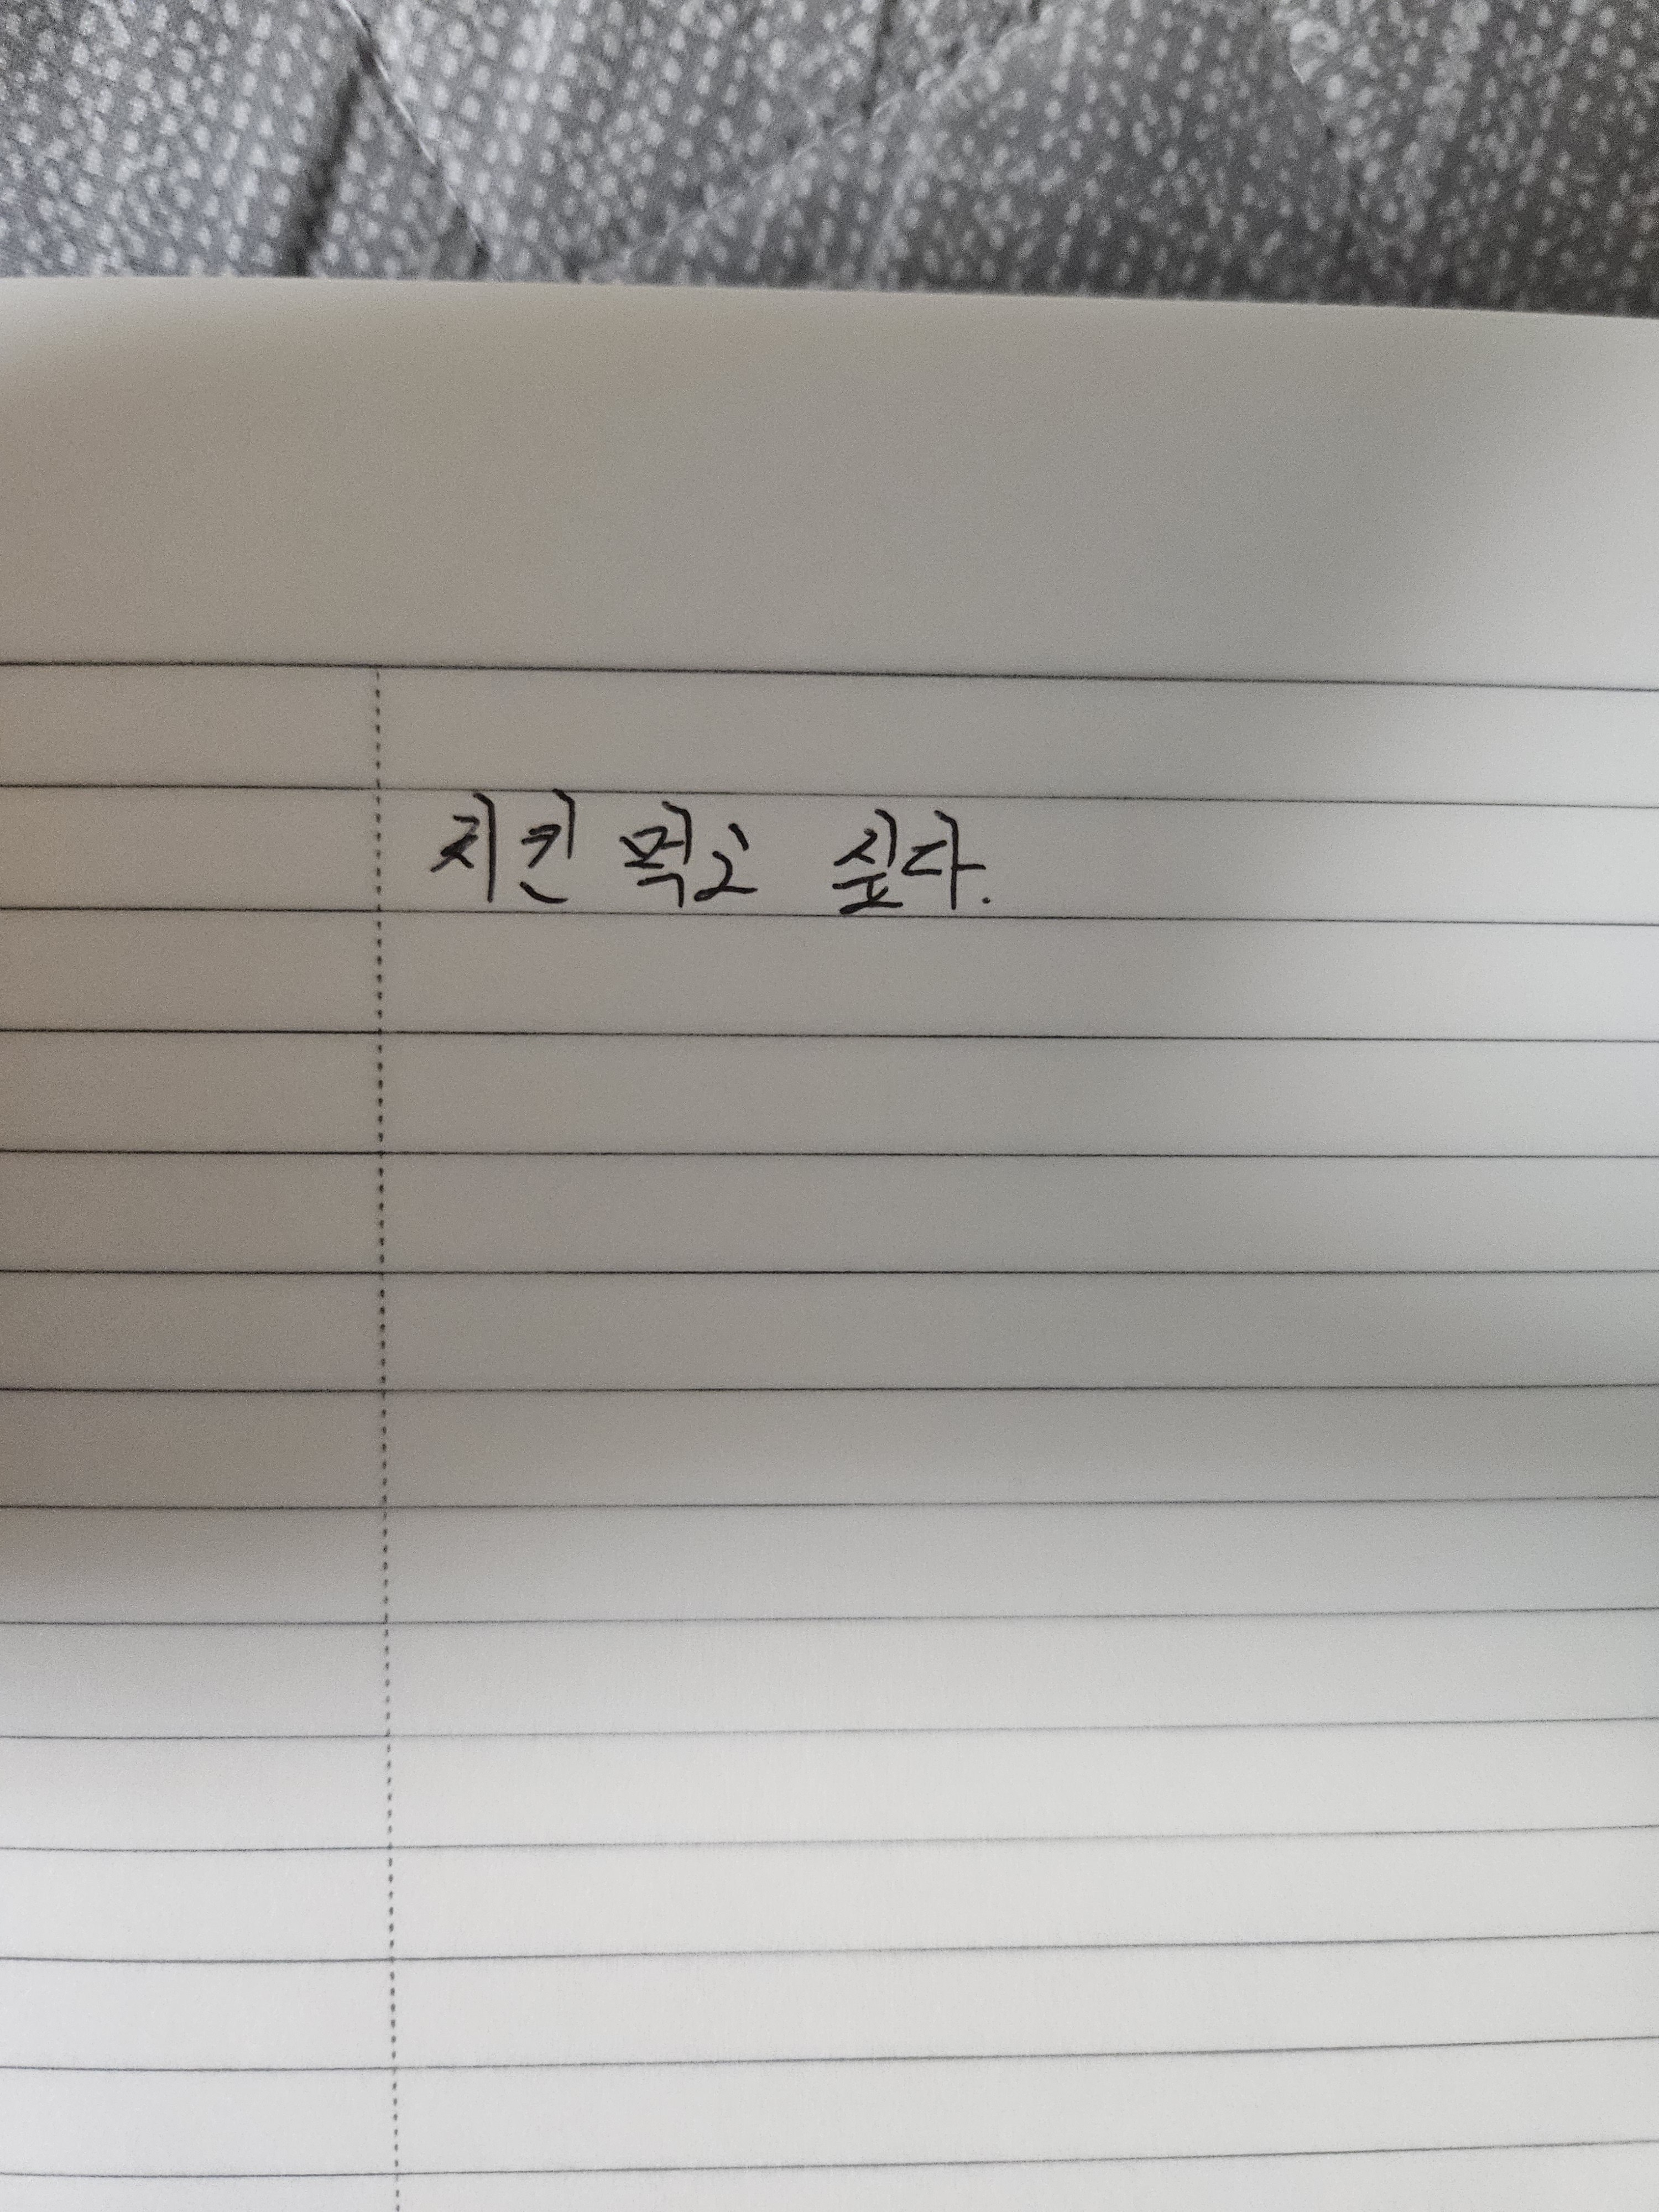 치킨 먹고 싶다.